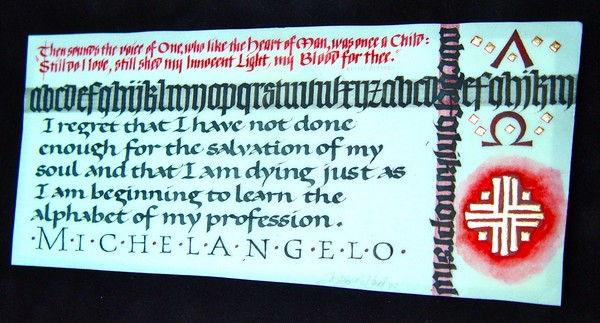 Then sounds the voice of One, who like the heart of Man, was once a Child:
"Still do I love, still shed my Innocent Light, my Blood for thee."
abcdefghijklmnopqrstuvwxyzabcdefghijklm
I regret that I have not done
enough for the salvation of my
soul and that I am dying just as
I am beginning to learn the
alphabet of my profession.
·M·I·C·H·E·L·A·N·G·E·L·O·
Λ
Ω